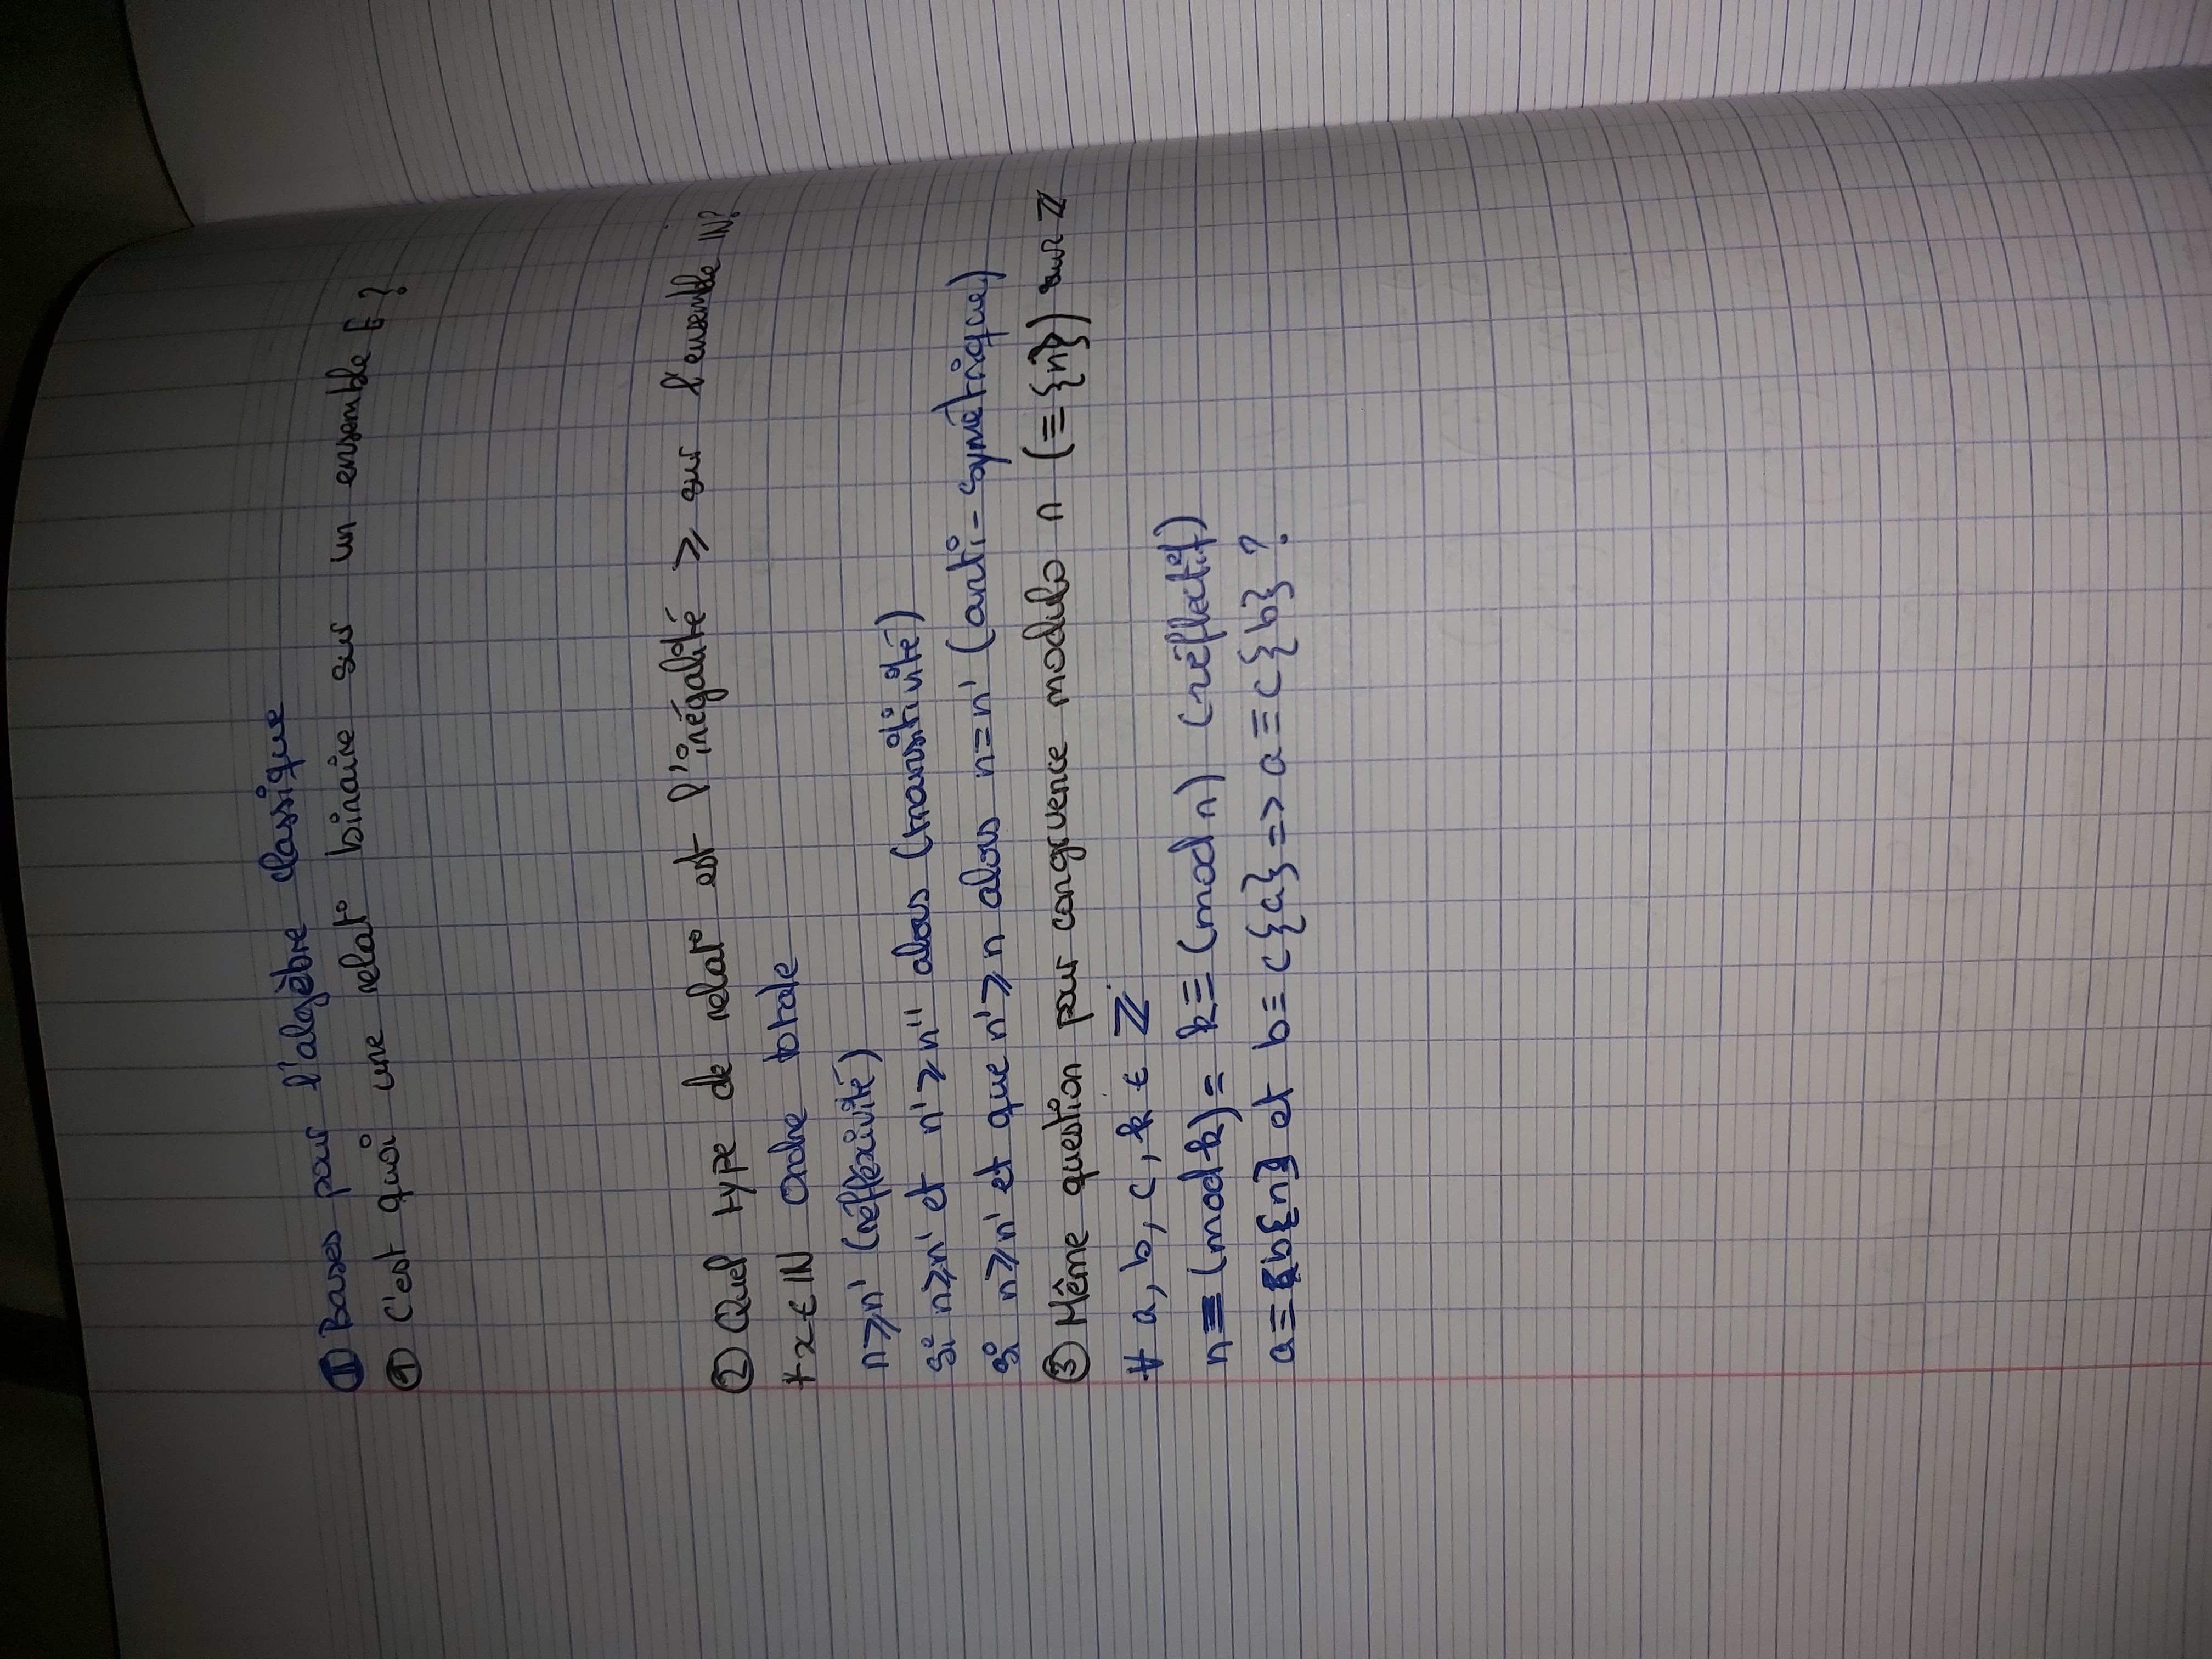 II Bases pour l'algèbre classique
① C'est quoi une relat° binaire sur un ensemble E?
② Quel type de relat° est l'inégalité ⩾ sur l'ensemble ℕ?
∀x ∈ ℕ Ordre totale
n⩾n' (réfléxivité)
Si n⩾n' et n'⩾n'' alors (transitivité)
Si n⩾n' et que n'⩾n alors n=n' (anti-symétrique)
③ Même question pour congruence modulo n (≡{n}) sur ℤ
∀ a, b, c, k ∈ ℤ
n≡(mod k) = k≡(mod n) (réflectif)
a≡b{n} et b≡c{a} => a≡c{b} ?